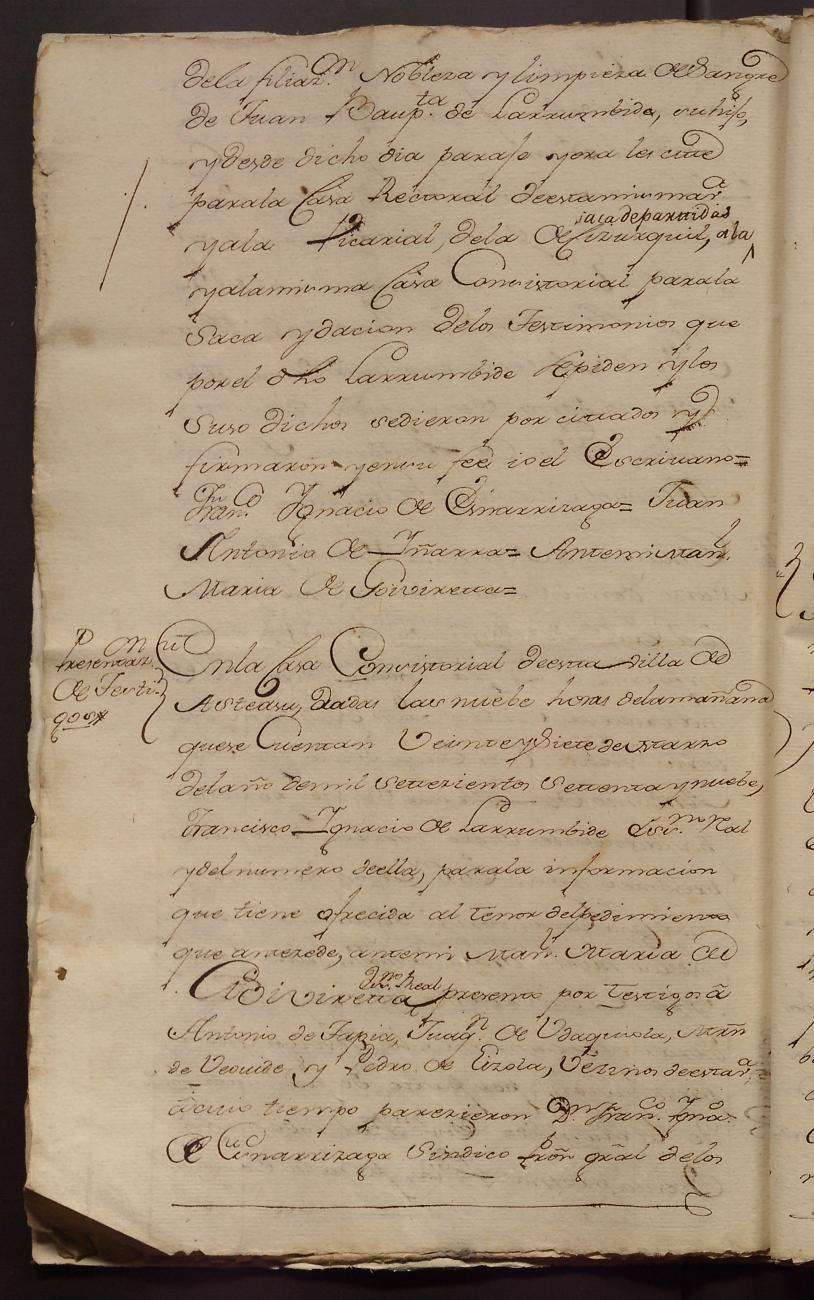 dela filiaz.ⁿ Nobleza y limpieza de Sangre
de Juan Baup.ta de Larrumbide, su hijo,
y desde dicho dia para se y ora les cite
para la Casa Rectoral de esta misma
saca de partidas
y ala Vicarial, dela de Cizurquil, ala
y ala misma Casa Concistorial para la
Saca y dacion delos Testimonios que
por el dho Larrumbide se piden y los
Suso dichos se dieron por citados y
firmaron y en su feé io el Escrivano=
Fran.co Ygnacio de Esnarrizaga= Juan
Antonio de Yñarra= Antemi Man.l
Maria de Goivireta=
Presentaz.on
de Testi
gos
En la Casa Concistorial de esta Villa de
Asteasu, Dadas las nuebe horas dela mañana
que se Cuentan Veinte y Siete de Marzo
del año de mil Setezientos Setenta y nuebe,
Francisco Ygnacio de Larrumbide Ess.no Real
y del numero de ella, para la informacion
que tiene ofrecida al tenor del pedimiento
que antezede, antemi Man.l Maria de
Ess.no Real
Goivireta presento por Testigos á
Antonio de Tapia, Juaq.n de Udaquiola, Mrñ
de Veovide, y Pedro de Eizola, Vezinos de esta
á cuio tiempo parezieron D.n Fran.co Ygn.o
de Esnarrizaga Sindico Prõn grãl delos